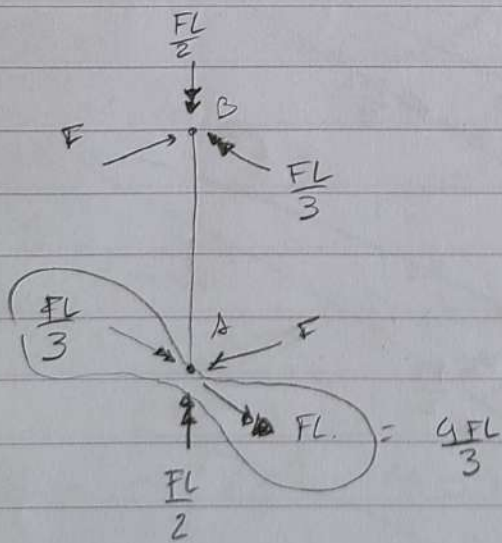 FL/2
B
F
FL/3
FL/3
A
F
FL. = 4FL/3
FL/2